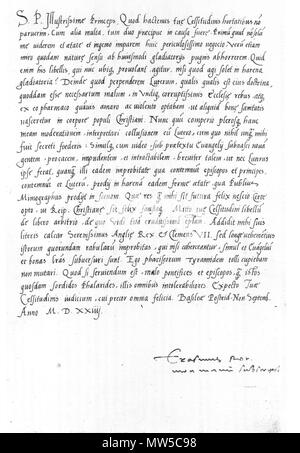 S. P. Illustrissime Princeps. Quod hactenus tuę Celsitudinis hortatibus nō
paruerim. Cum alia multa, tum duo precipue in causa fuere. Primū quod nō solū
me uiderem et ętate et ingenio imparem huic periculosissimo negocio. Verū etiam
miro quodam naturę sensu ab huiusmodi gladiatorijs pugnis abhorrerem. Quid
enim his libellis, qui nūc ubiq; prouolant, agitur, nisi quod agi solet in harena
gladiatoria? Deinde quod perpenderem Lutheri, qualis qualis est eius doctrina,
quoddam esse necessarium malum, in undiq; corruptissimis Ecclesię rebus atq;
ex eo pharmaco quāuis amaro ac uiolento optabam, ut aliquid bonę sanitatis
nasceretur in corpore populi Christiani. Nunc quū comperio plerosq; hanc
meam moderationem interpretari collusionem cū Lutero, cum quo nihil unq; mihi
fuit secreti foederis. Simulq; cum uideo sub pretextu Euangelij subnasci noua
gentem, procacem, impudentem, et intractabilem, breuiter talem, ut nec Luterus
ipse ferat, quanq; illi eadem improbitate qua contemnūt episcopos et principes,
contemnūt et Luterum, prodij in harenā eadem ferme ętate, qua Publius
Mimographus prodijt in scenam. Que res q̄ mihi sit futura felix nescio. Certe
opto, ut Reip. Christianę sit felix faustaq;. Mitto tuę Celsitudini libellū
de libero arbitrio, de quo Addidit mihi suis
literis calcar Serenissimus Anglię Rex et Clemens VII. Sed longe uehementius
istorum quorundam rabularū improbitas, qui nisi coherceantur, simul et Euāgeliū
et bonas lrās subuersuri sunt. Ego pharisęorum tyrannidem tolli cupiebam
non mutari. Quod si seruiendum est, malo pontifices et episcopos, q̄
quosdam sordidos Phalarides, illis omnibus intolerabiliores. Expecto Tuę
Celsitudinis iudicium, cui precor omnia felicia. Basileę Postrid. Non. Septemb.
Anno M. D. XXiiij.
Erasmus Rot.
mea manu subscripsi
MW5C98